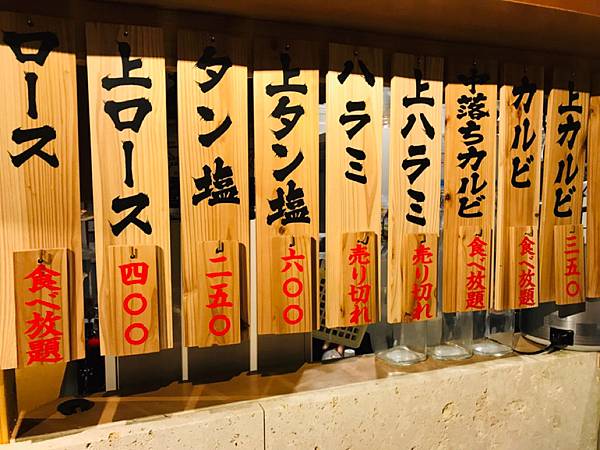 ロース
食べ放題
上ロース
四〇〇
タン塩
二五〇
上タン塩
六〇〇
ハラミ
売り切れ
上ハラミ
売り切れ
中落ちカルビ
食べ放題
カルビ
食べ放題
上カルビ
三五〇